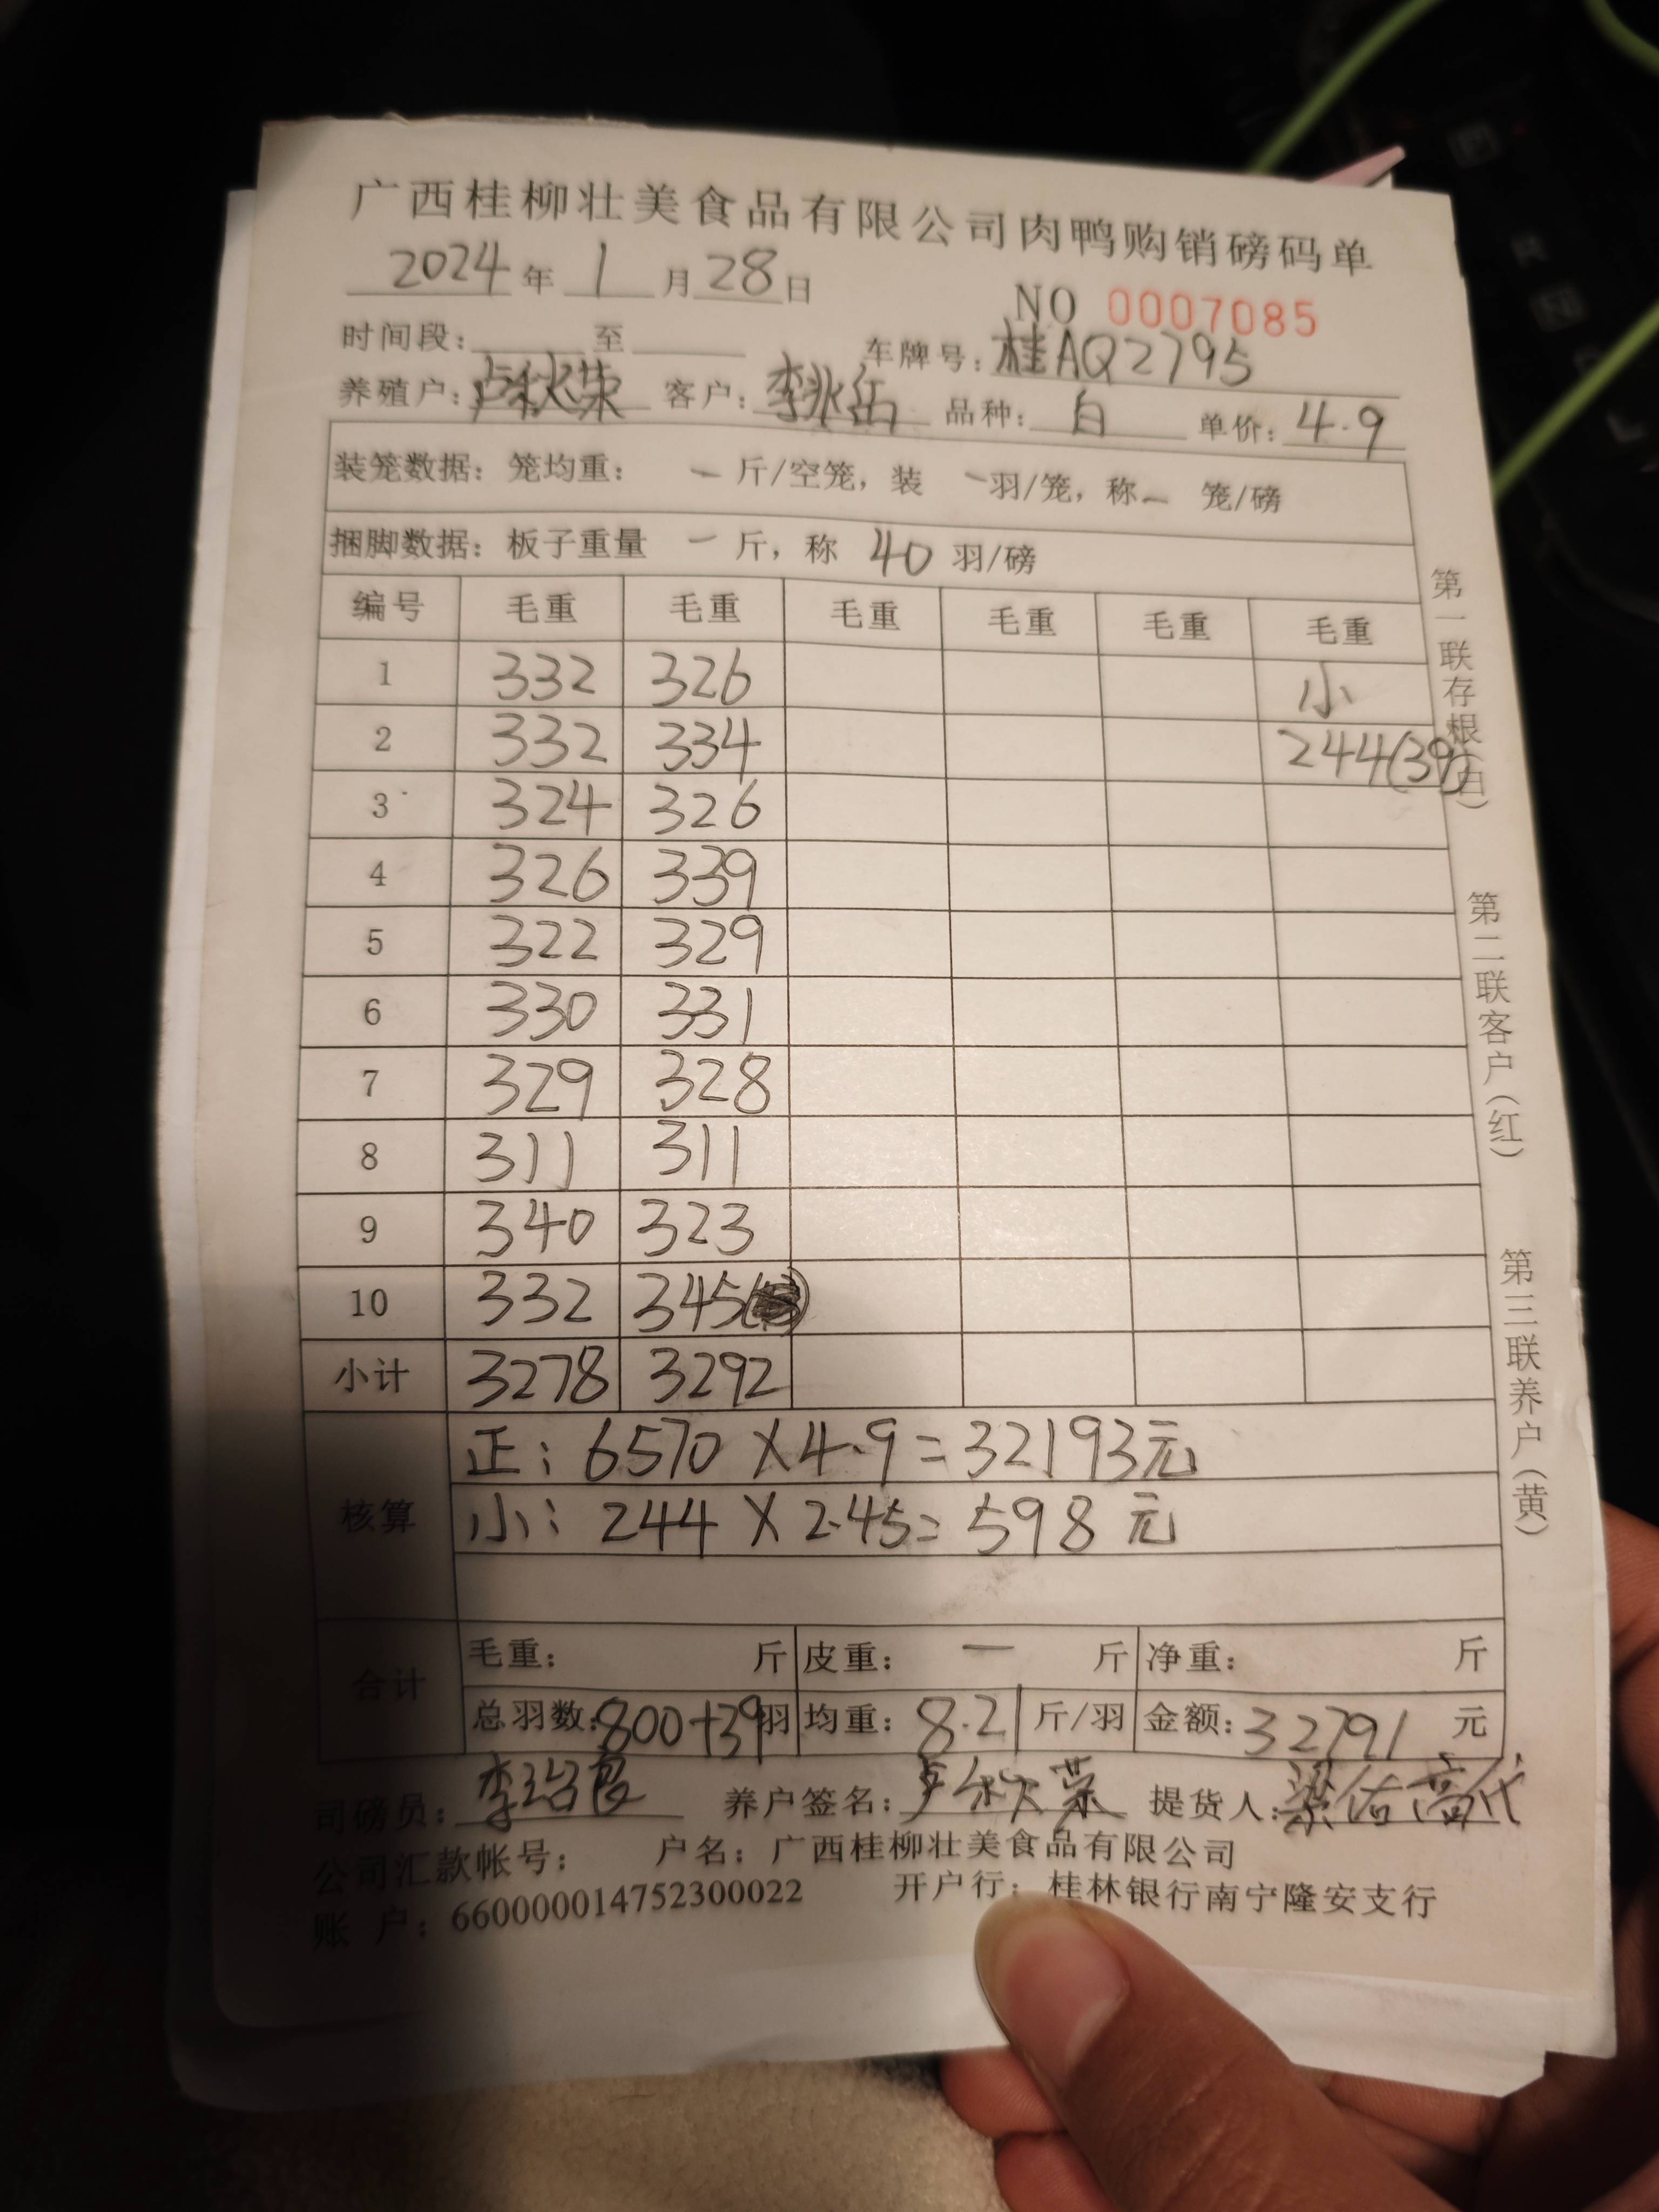 广西桂柳壮美食品有限公司肉鸭购销磅码单
2024年 1月28日
NO 0007085
时间段: 至 车牌号:桂AQ2795
养殖户:卢秋荣 客户:李兆岳 品种:白 单价:4.9
装笼数据:笼均重: 一 斤/空笼,装 一羽/笼,称一 笼/磅
捆脚数据:板子重量 一 斤,称 40 羽/磅
编号 毛重 毛重 毛重 毛重 毛重 毛重
1 332 326 小
2 332 334 244(39)
3 324 326
4 326 339
5 322 329
6 330 331
7 329 328
8 311 311
9 340 323
10 332 345
小计 3278 3292
核算
正:6570×4.9=32193元
小:244×2.45=598元
合计
毛重: 斤 皮重: 一 斤 净重: 斤
总羽数:800+39羽 均重:8.21斤/羽 金额:32791 元
司磅员:李治良 养户签名:卢秋荣 提货人:梁佑高代
公司汇款帐号: 户名:广西桂柳壮美食品有限公司
账 户:660000014752300022 开户行:桂林银行南宁隆安支行
第一联存根(白)
第二联客户(红)
第三联养户(黄)